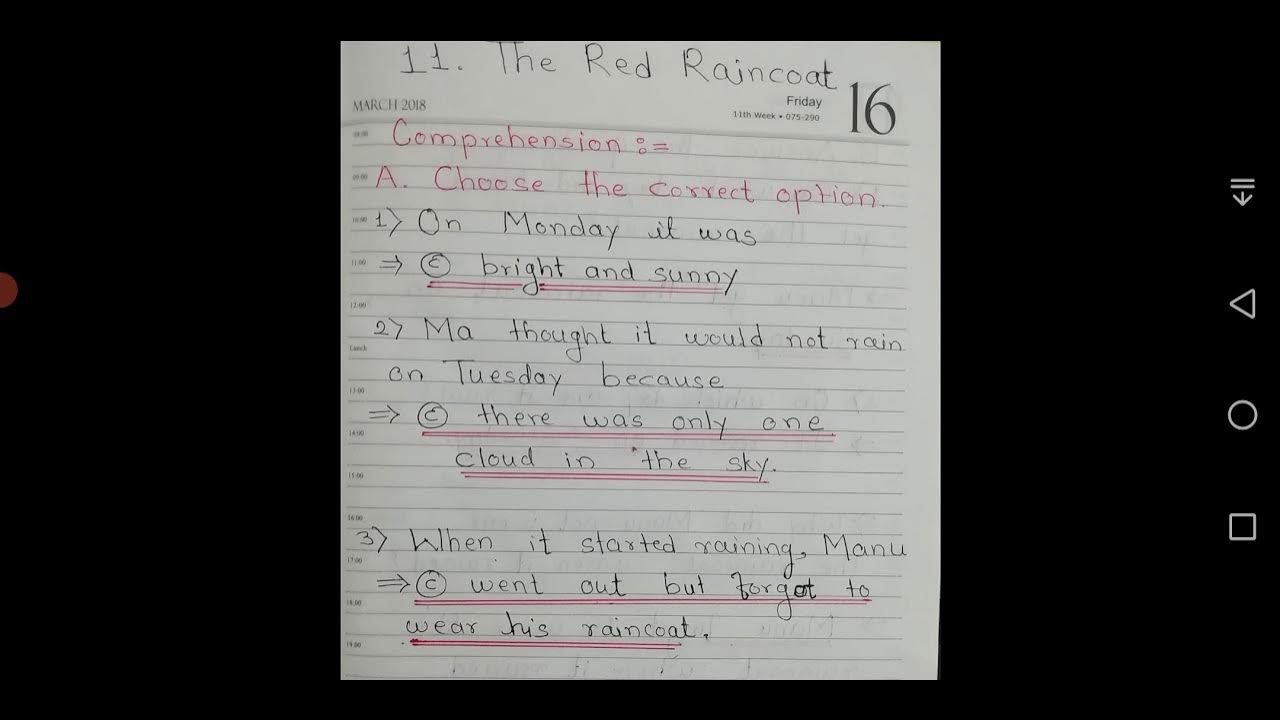 11. The Red Raincoat
MARCH 2018
Friday
16
11th Week • 075-290
Comprehension :=
09:00 A. Choose the correct option.
10:00 1) On Monday it was
11:00 ⇒ © bright and sunny
12:00
2) Ma thought it would not rain
Lunch
on Tuesday because
13:00
⇒ © there was only one
14:00
cloud in the sky.
15:00
16:00
3) When it started raining, Manu
17:00
⇒ © went out but forgot to
18:00
wear his raincoat.
19:00